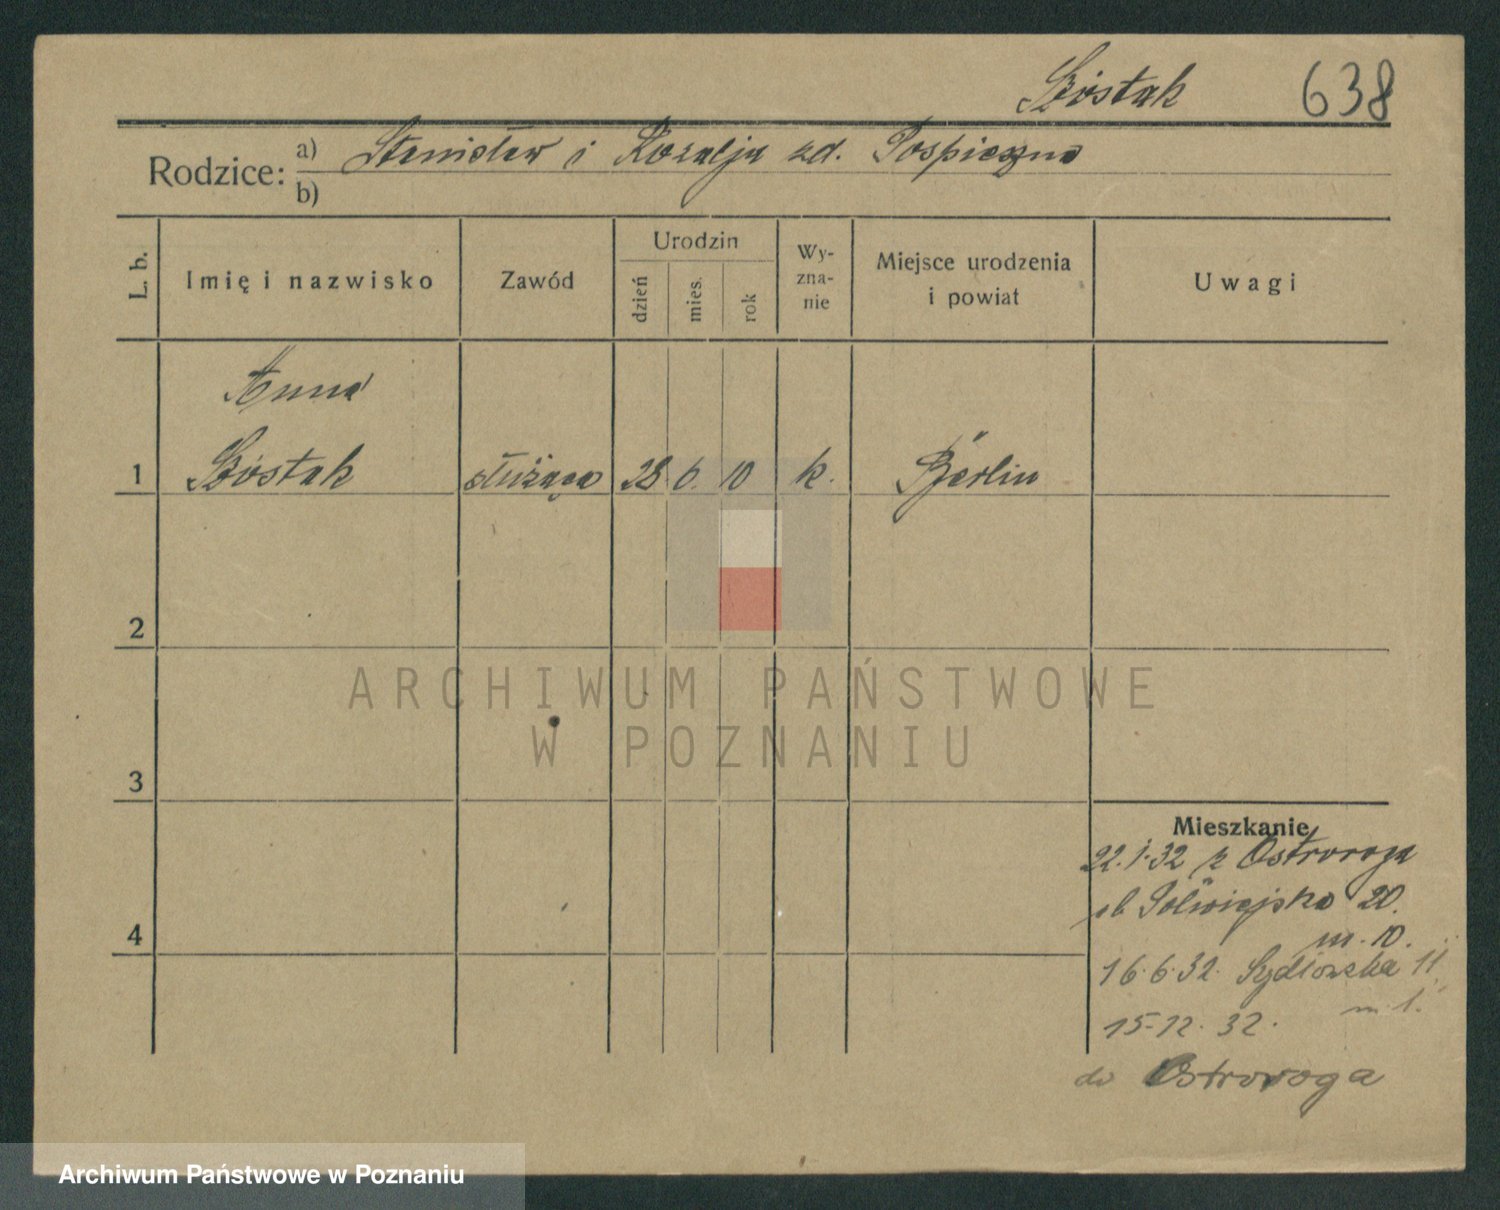 Szóstak 638
Rodzice: a) Stanisław i Rozalja zd. Pospieszna
b)
L. b. Imię i nazwisko Zawód Urodzin dzień mies. rok Wy-zna-nie Miejsce urodzenia i powiat Uwagi
Anna
1 Szóstak służąca 28 6. 10 k. Berlin
2
ARCHIWUM PAŃSTWOWE
W POZNANIU
3
Mieszkanie
22.1.32 z Ostroroga
Półwiejska 20.
m. 10.
4
16.6.32. Szydłowska 11
m 1.
15-12. 32.
do Ostroroga
Archiwum Państwowe w Poznaniu